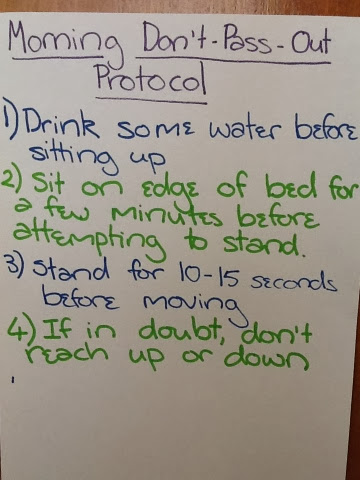 Morning Don't-Pass-Out
Protocol
1) Drink some water before
sitting up
2) Sit on edge of bed for
a few minutes before
attempting to stand.
3) Stand for 10-15 seconds
before moving
4) If in doubt, don't
reach up or down